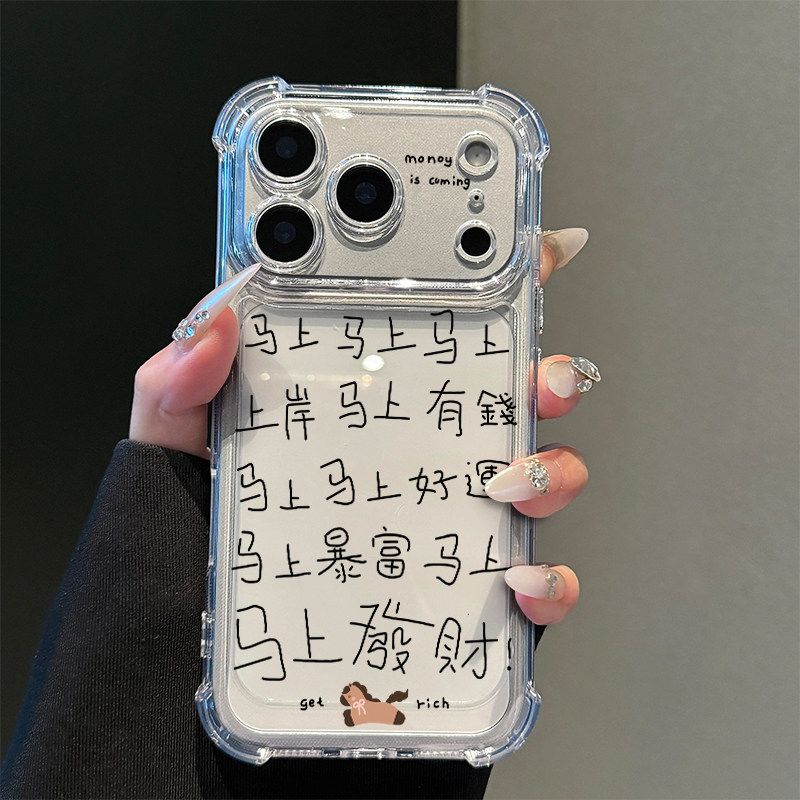 monoy
is cuming
马上马上马上
上岸马上有錢
马上马上好運
马上暴富马上
马上發財!
get rich